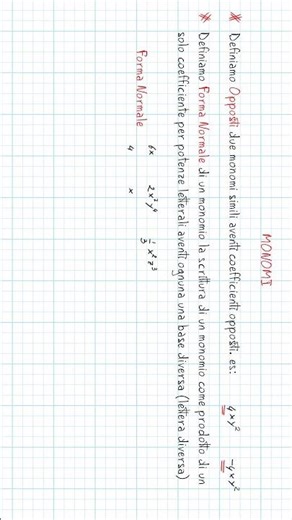 MONOMI
* Definiamo Opposti due monomi simili aventi coefficienti opposti. es: 4xy² -4xy²
* Definiamo Forma Normale di un monomio la scrittura di un monomio come prodotto di un
solo coefficiente per potenze letterali aventi ognuna una base diversa (lettera diversa)
Forma Normale
6x 2x³y⁴ 1/3 x²z³
4 x